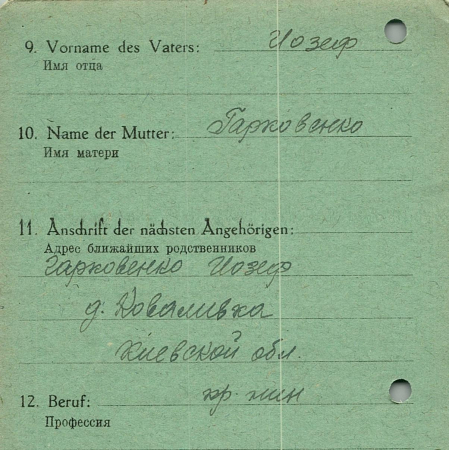 9. Vorname des Vaters: Иозеф
Имя отца
10. Name der Mutter: Гарковенко
Имя матери
11. Anschrift der nächsten Angehörigen:
Адрес ближайших родственников
Гарковенко Иозеф
д. Коваливка
Киевской обл.
12. Beruf: кр-нин
Профессия